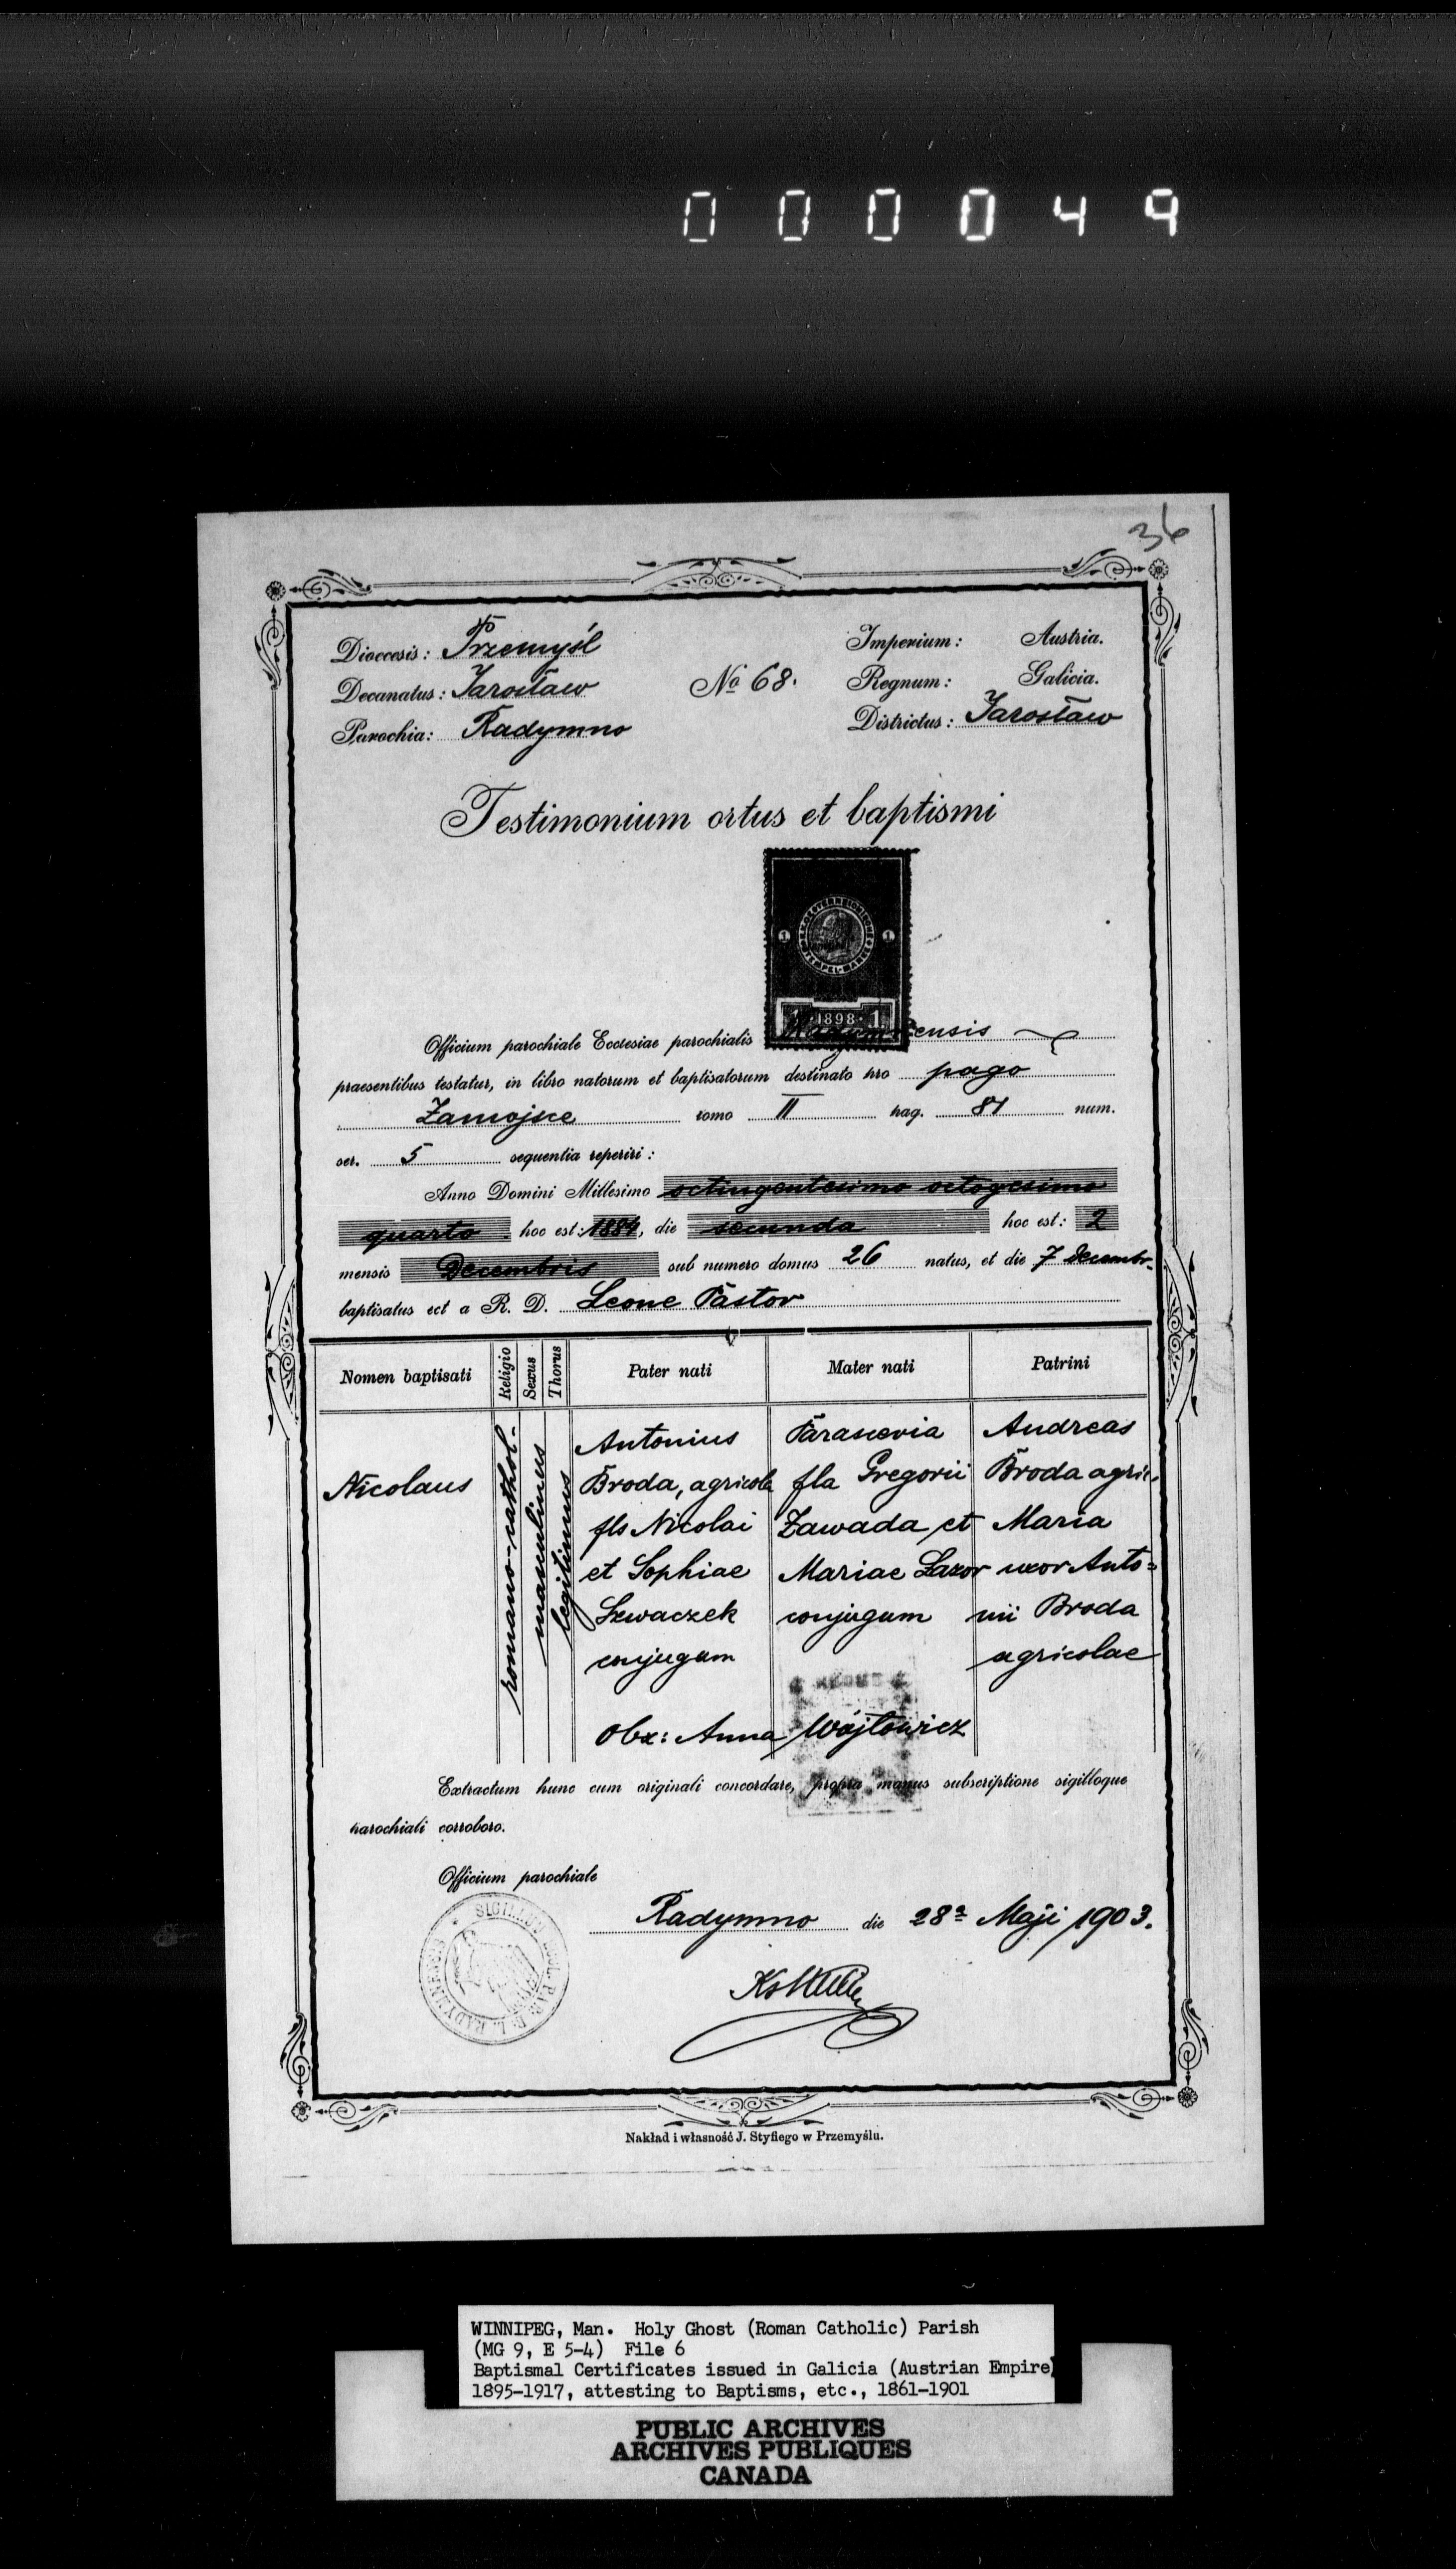 000049
36
Dioecesis: Przemyśl
Imperium: Austria.
Decanatus: Jarosław
No 68.
Regnum: Galicia.
Parochia: Radymno
Districtus: Jarosław
Testimonium ortus et baptismi
1 1
1 1898 1
Officium parochiale Ecclesiae parochialis Radymnensis
praesentibus testatur, in libro natorum et baptisatorum destinato pro pago
Zamojsce tomo II pag. 81 num.
ser. 5 sequentia reperiri:
Anno Domini Millesimo octingentesimo octogesimo
quarto hoc est: 1884, die secunda hoc est: 2
mensis Decembris sub numero domus 26 natus, et die 7 decembr.
baptisatus est a R. D. Leone Pastor
Nomen baptisati Religio Sexus Thorus Pater nati Mater nati Patrini
Nicolaus
romano-cathol.
masculinus
legitimus
Antonius
Broda, agricola
fls Nicolai
et Sophiae
Szwaczek
conjugum
Parascevia
fla Gregorii
Zawada et
Mariae Lazor
conjugum
Andreas
Broda agric.
Maria
uxor Anto=
nii Broda
agricolae
Obx: Anna Wójtowicz
Extractum hunc cum originali concordare, propria manus subscriptione sigilloque
parochiali corroboro.
Officium parochiale
Radymno die 28a Maji 1903.
SIGILLUM ECCL. PAR. R. L. RADYMNENSIS
Nakład i własność J. Styfiego w Przemyślu.
WINNIPEG, Man. Holy Ghost (Roman Catholic) Parish
(MG 9, E 5-4) File 6
Baptismal Certificates issued in Galicia (Austrian Empire)
1895-1917, attesting to Baptisms, etc., 1861-1901
PUBLIC ARCHIVES
ARCHIVES PUBLIQUES
CANADA